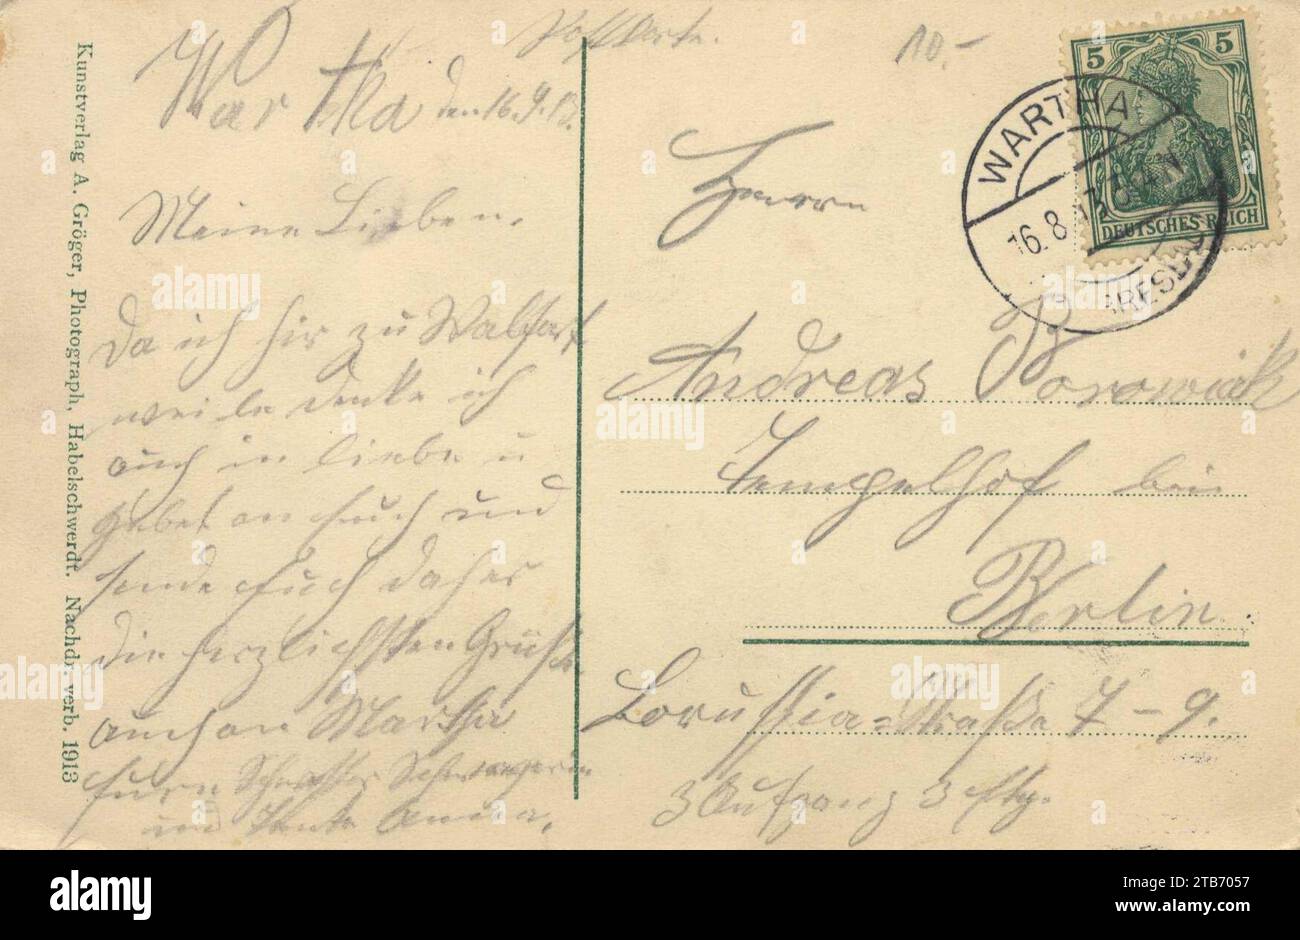 Kunstverlag A. Gröger, Photograph, Habelschwerdt. Nachdr. verb. 1913
Postkarte.
10.-
Wartha den 16.
Meine Lieben.
Da ich hir zu Walfart
weile denke ich
auch in liebe u
Gebet an Euch und
sende Euch daher
die herzlichsten Grüße
auch an Martha
Eure Schwester Schwägerin
und Tante Anna.
5 5
DEUTSCHES REICH
WARTHA
16.8
BRESLAU
Herrn
Andreas Borowiak
Tempelhof bei
Berlin.
Borussia=Straße 7-9.
3 Aufgang 3 Etg.
alamy
Image ID: 2TB7057
www.alamy.com